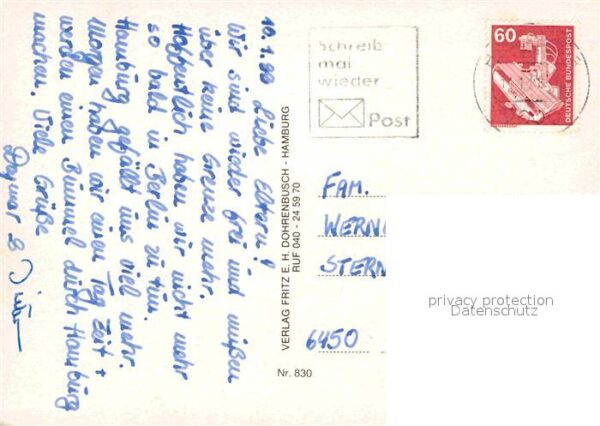 10.1.90
Liebe Eltern!
Wir sind wieder frei und müßen
über keine Grenze mehr.
Hoffentlich haben wir nicht mehr
so bald in Berlin zu tun.
Hamburg gefällt uns viel mehr.
Morgen haben wir einen Tag Zeit +
werden einen Bummel durch Hamburg
machen. Viele Grüße
Dagmar &
VERLAG FRITZ E. H. DOHRENBUSCH - HAMBURG
RUF 040 - 24 59 70
Nr. 830
Schreib
mal
wieder
Post
60
DEUTSCHE BUNDESPOST
FAM.
WERN
STERN
6450
privacy protection
Datenschutz